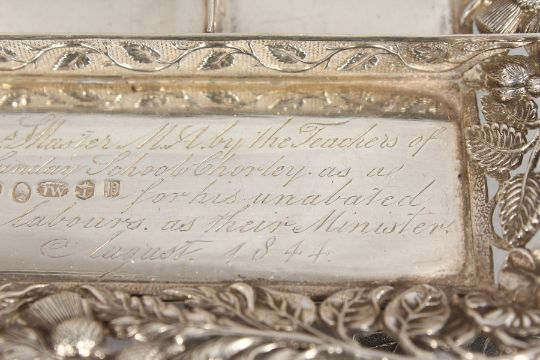 Master M.A. by the Teachers of
Sunday School Chorley. as a
TW
for his unabated
labours. as their Minister.
August 1844.